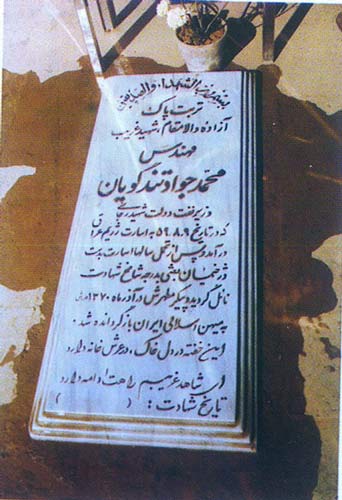 بسم رب الشهداء والصدیقین
تربت پاک
آزاده والامقام، شهید غریب
مهندس
محمد جواد تندگویان
وزیر نفت دولت شهید رجائی
که در تاریخ ۵۹،۸،۹ به اسارت رژیم عراق
درآمد و پس از تحمل سالها اسارت بدست
دژخیمان بعثی بدرجه شامخ شهادت
نائل گردید و پیکر مطهرش در آذر ماه ۱۳۷۰
به میهن اسلامی ایران بازگردانده شد.
این خفته در دل خاک، در عرش خانه دارد
از شاهد غریبم راهت ادامه دارد
تاریخ شهادت : ( )